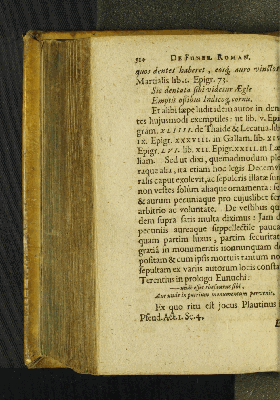 DE FUNER. ROMAN.
quos dentes haberet, eosq; auro vinctos
Martialis lib. 1. Epigr. 73.
Sic dentata sibi videtur Ægle
Emptis ossibus Indicoq; cornu.
Et alibi sæpe ludit idem autor in den-
tes hujusmodi exemptiles: ut lib. v. Epi
gram. XLIIII. de Thaide & Lecania. lib.
IX. Epigr. XXXVIII. in Gallam. lib. XIV
Epigr. LVI. lib. XII. Epigr. XXIII. in Læ
liam. Sed ut dixi, quemadmodum ple
raque alia, ita etiam hoc legis Decemvi
ralis caput exolevit, ac sepulcris illatæ sunt
non vestes solum aliaque ornamenta: sed
& aurum pecuniaque pro cujuslibet fere
arbitrio ac voluntate. De vestibus qui
dem supra satis multa diximus: Jam de
pecuniis aureaque suppellectile pauca
quam partim luxus, partim securitatis
gratiâ in monumentis nonnunquam de
positam & cum ipsis mortuis tantum non
sepultam ex variis autorum locis constat
Terentius in prologo Eunuchi:
Ex quo ritu est jocus Plautinus
Pseud. Act. 1. Sc. 4.